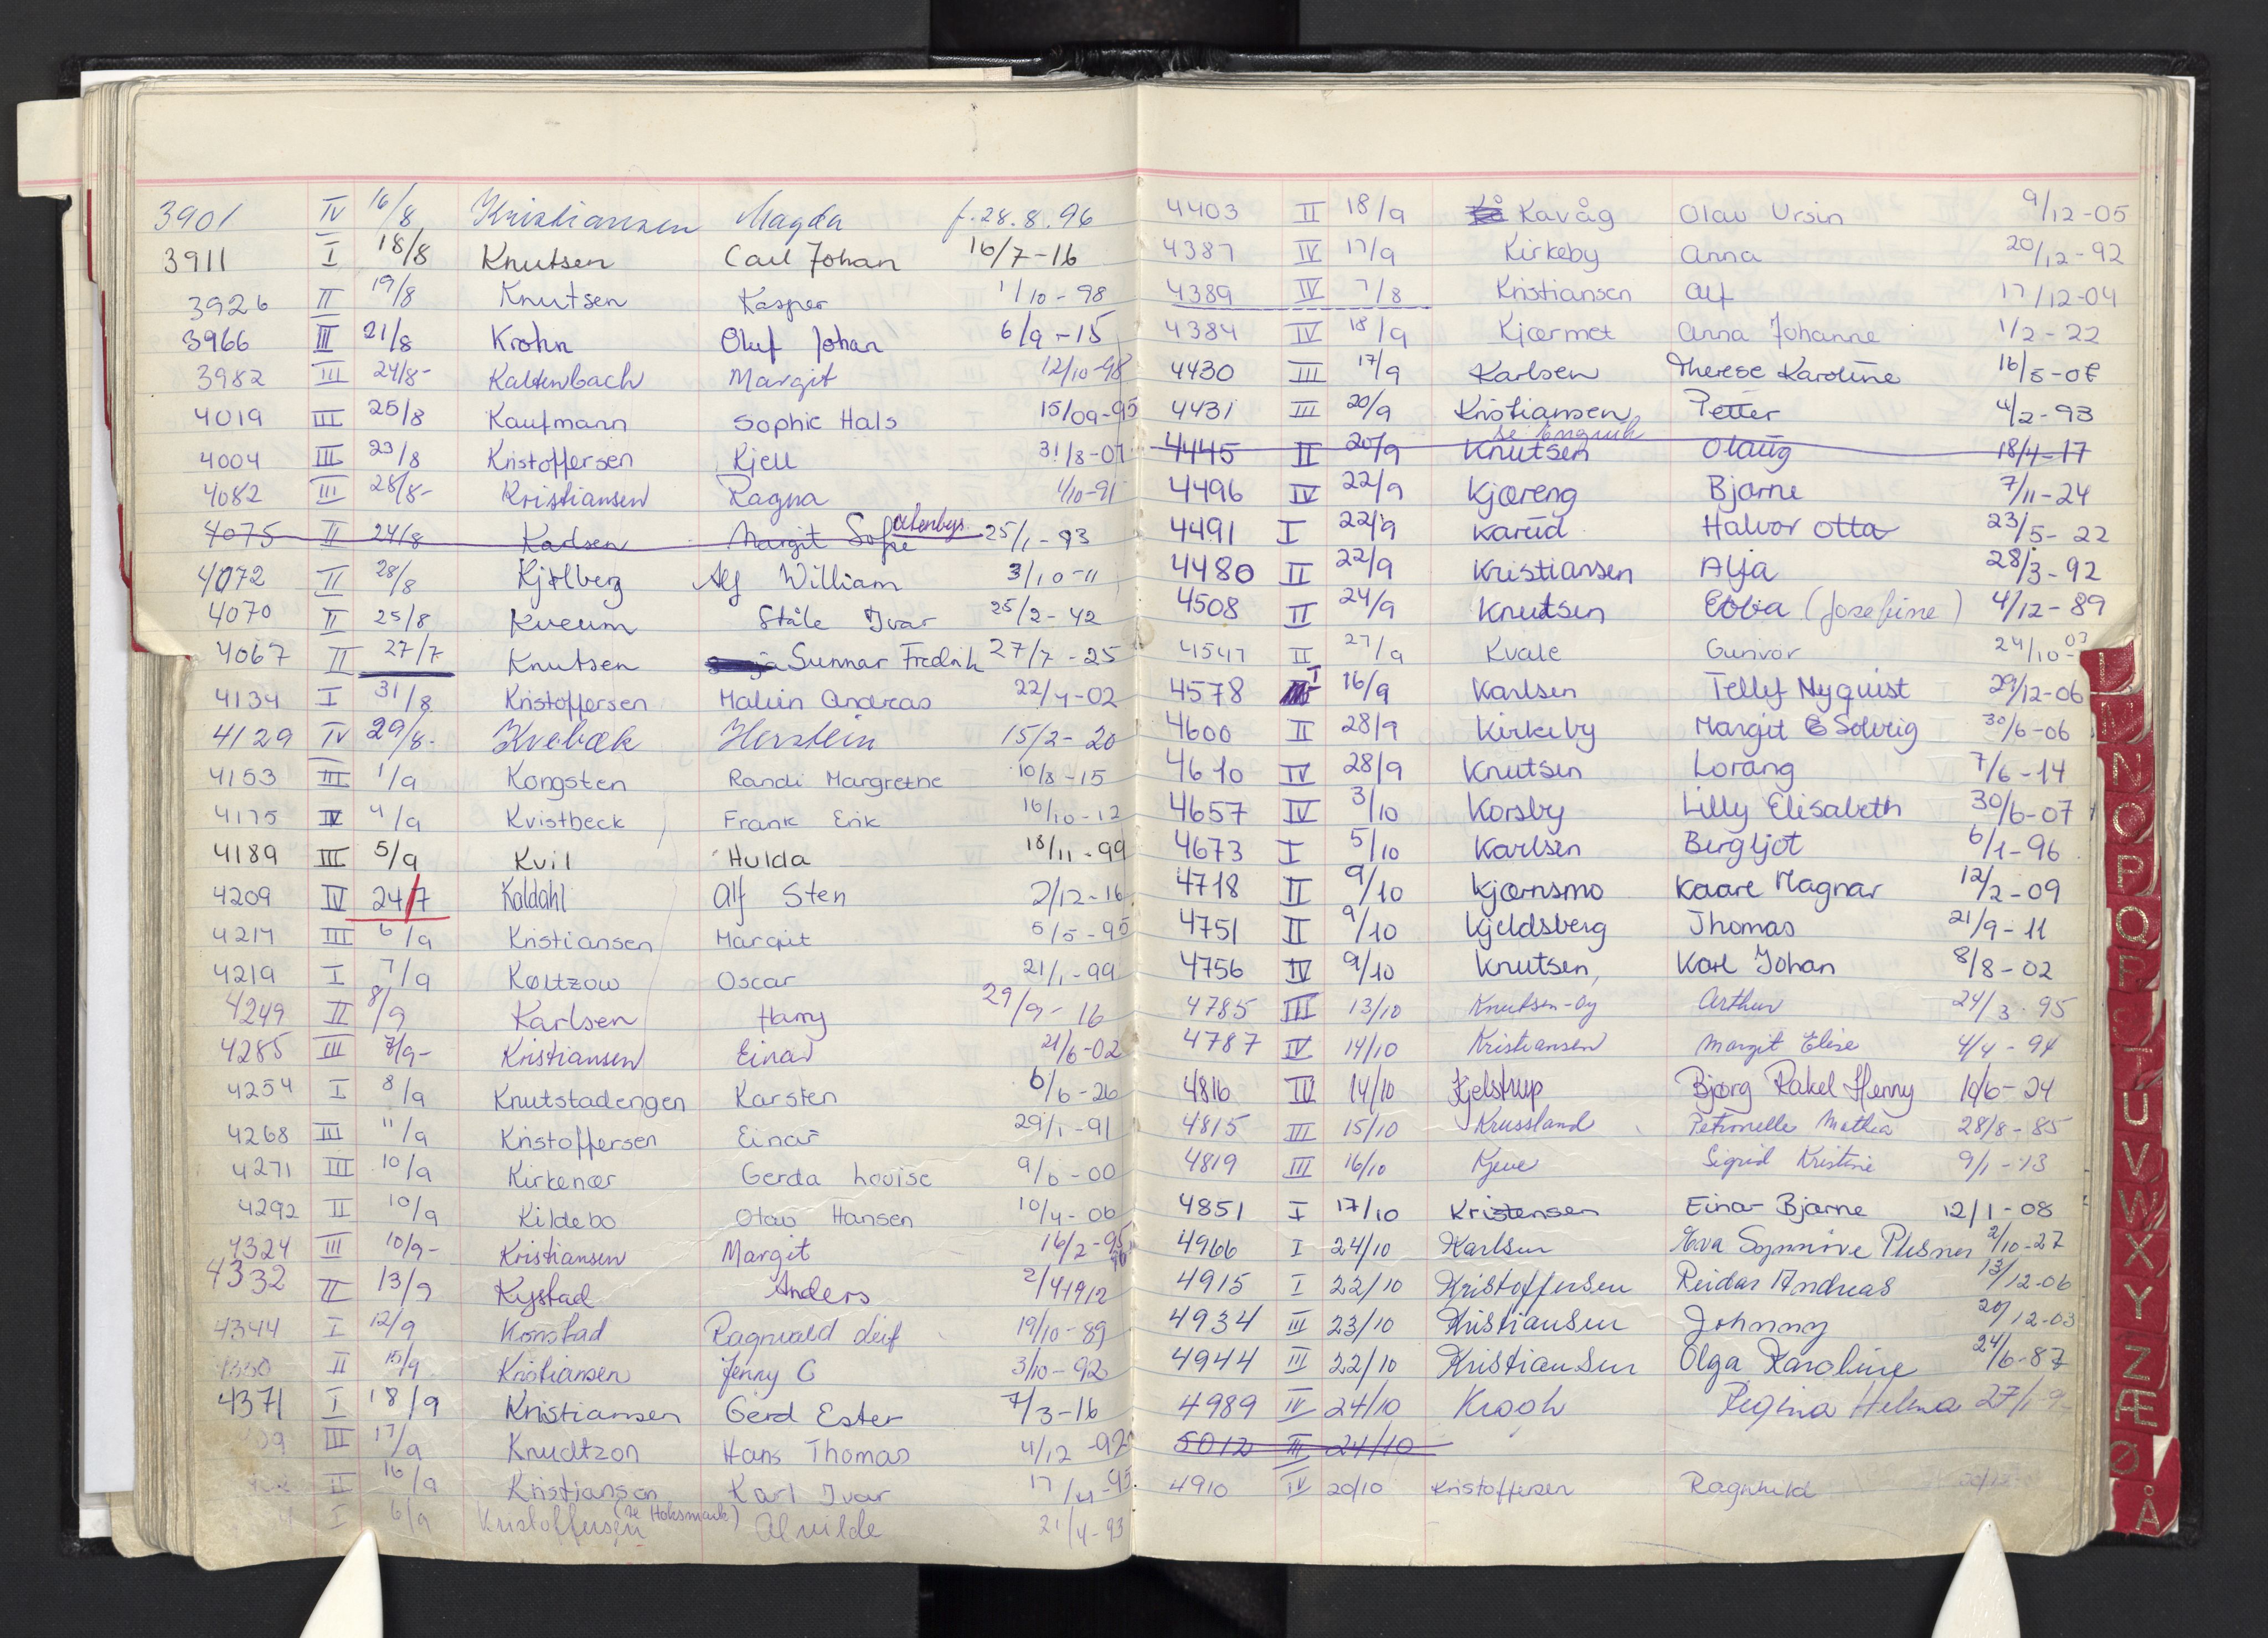 3901 IV 16/8 Kristiansen Magda f. 28.8.96
3911 I 18/8 Knutsen Carl Johan 16/7-16
3926 II 19/8 Knutsen Kasper 1/10-98
3966 III 21/8 Krohn Oluf Johan 6/9-15
3982 III 24/8- Kaltenbach Margit 12/10-98
4019 III 25/8 Kaufmann Sophie Hals 15/09-95
4004 III 23/8 Kristoffersen Kjell 31/8-07
4082 III 28/8- Kristiansen Ragna 1/10-91
4075 II 24/8 Karlsen Margit Sofie 25/1-93
4072 II 28/8 Kjølberg Alf William 3/10-11
4070 II 25/8 Kveum Ståle Ivar 25/2-42
4067 II 27/7 Knutsen Gunnar Fredrik 27/7-25
4134 I 31/8 Kristoffersen Malvin Andreas 22/4-02
4129 IV 29/8- Kvebæk Herstein 15/2-20
4153 III 1/9 Kongsten Randi Margrethe 10/8-15
4175 IV 4/9 Kvistbeck Frank Erik 16/10-12
4189 III 5/9 Kvil Hulda 18/11-99
4209 IV 24/7 Kaldahl Alf Sten 2/12-16
4217 III 6/9 Kristiansen Margit 5/5-95
4219 I 7/9 Køltzow Oscar 21/1-99
4249 II 8/9 Karlsen Harry 29/9-16
4285 III 7/9- Kristiansen Einar 21/6-02
4254 I 8/9 Knutstadengen Karsten 6/6-26
4268 III 11/9 Kristoffersen Einar 29/1-91
4271 III 10/9 Kirkenær Gerda Louise 9/6-00
4292 II 10/9 Kildebo Olav Hansen 10/4-06
4324 III 10/9- Kristiansen Margit 16/2-95
4332 II 13/9 Kystad Anders 2/4 1912
4344 I 12/9 Konstad Ragnvald Leif 19/10-89
II 15/9 Kristiansen Jenny C 3/10-92
4371 I 18/9 Kristiansen Gerd Ester 7/3-16
III 17/9 Knudtzon Hans Thomas 4/12-92
II 16/9 Kristiansen Karl Ivar
I 6/9 Kristoffersen (se Holsmark) Alvilde 21/4-93
4403 II 18/9 Kavåg Olav Ursin 9/12-05
4387 IV 17/9 Kirkeby Anna 20/12-92
4389 IV 7/8 Kristiansen Alf 17/12-04
4384 IV 18/9 Kjærmet Anna Johanne 1/2-22
4430 III 17/9 Karlsen Therese Karoline 16/5-07
4431 III 20/9 Kristiansen Petter 4/2-93
4445 II 20/9 Knutsen Olaug 18/4-17
4496 IV 22/9 Kjæreng Bjarne 7/11-24
4491 I 22/9 Karud Halvor Otta 23/5-22
4480 II 22/9 Kristiansen Alja 28/3-92
4508 II 24/9 Knudsen Ebba (Josefine) 4/12-89
4547 II 27/9 Kvale Gunvor 24/10-03
4578 I 16/9 Karlsen Tellef Nyquist 29/12-06
4600 II 28/9 Kirkeby Margit Solveig 30/6-06
4610 IV 28/9 Knutsen Lorang 7/6-14
4657 IV 3/10 Korsby Lilly Elisabeth 30/6-07
4673 I 5/10 Karlsen Bergljot 6/1-96
4718 II 9/10 Kjærnsmo Kaare Magnar 12/2-09
4751 II 9/10 Kjeldsberg Thomas 21/9-11
4756 IV 9/10 Knutsen, Karl Johan 8/8-02
4785 III 13/10 Knutsen-Øy Arthur 24/3-95
4787 IV 14/10 Kristiansen Margit Elise 4/4-94
4816 IV 14/10 Kjelstrup Bjørg Rakel Henny 10/6-24
4815 III 15/10 Krussland Petronelle Mathea 28/8-85
4819 III 16/10 Kjeve Sigrid Kristine 9/1-13
4851 I 17/10 Kristensen Einar Bjarne 12/1-08
4966 I 24/10 Karlsen Eva Synnøve Plesner 2/10-27
4915 I 22/10 Kristoffersen Reidar Andreas 13/12-06
4934 III 23/10 Kristiansen Johnny 20/12-03
4944 III 22/10 Kristiansen Olga Karoline 24/6-87
4989 IV 24/10 Krogh Regina Helena
5012 III 24/10
4910 IV 20/10 Kristoffersen Ragnhild
N
O
P
Q
R
T
U
V
W
X
Y
Z
Æ
Ø
Å